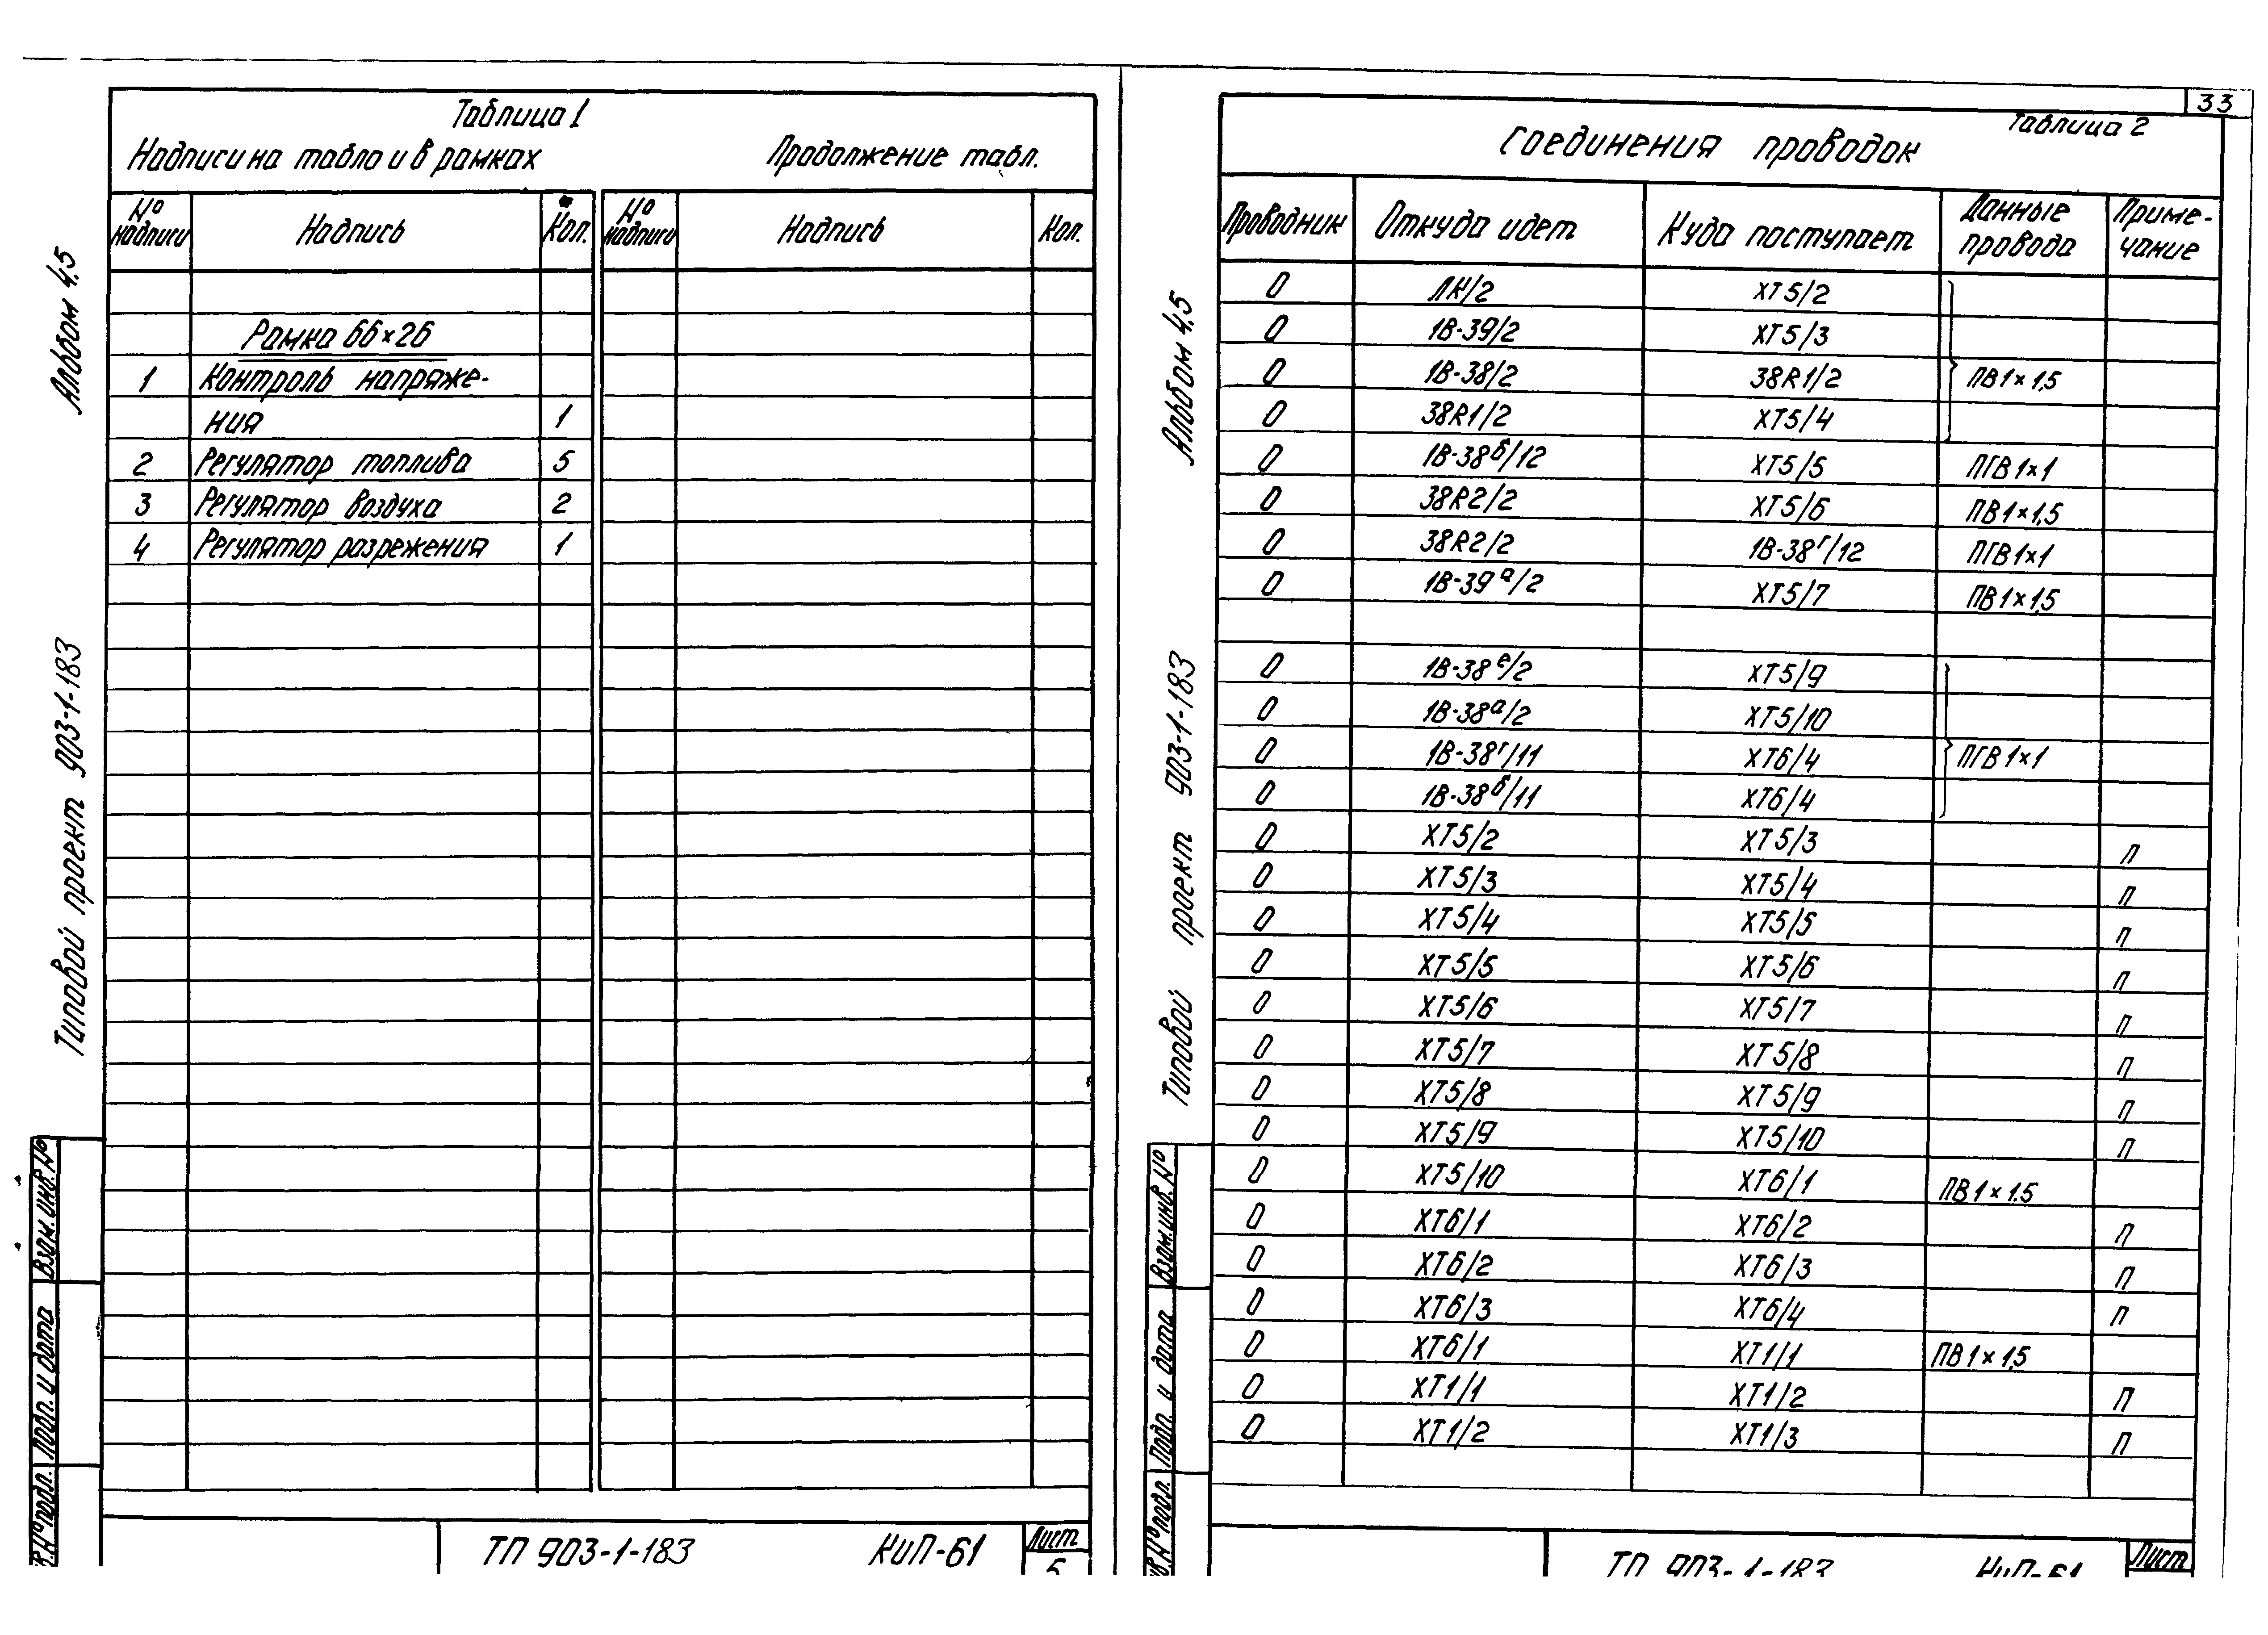 Таблица 1
Надписи на табло и в рамках Продолжение табл.
№ надписи Надпись Кол. № надписи Надпись Кол.
Рамка 66×26
1 Контроль напряже-
ния 1
2 Регулятор топлива 5
3 Регулятор воздуха 2
4 Регулятор разрежения 1
Альбом 4.5
Типовой проект 903-1-183
Взам. инв. №
Подп. и дата
№ подл.
ТП 903-1-183 КиП-61 Лист
33
Таблица 2
Соединения проводок
Проводник Откуда идет Куда поступает Данные провода Приме-чание
0 ЛК/2 ХТ5/2
0 1В-39/2 ХТ5/3
0 1В-38/2 38R1/2 ПВ1×1,5
0 38R1/2 ХТ5/4
0 1В-38б/12 ХТ5/5 ПГВ1×1
0 38R2/2 ХТ5/6 ПВ1×1,5
0 38R2/2 1В-38г/12 ПГВ1×1
0 1В-39а/2 ХТ5/7 ПВ1×1,5
0 1В-38е/2 ХТ5/9
0 1В-38а/2 ХТ5/10
0 1В-38г/11 ХТ6/4 ПГВ1×1
0 1В-38б/11 ХТ6/4
0 ХТ5/2 ХТ5/3 П
0 ХТ5/3 ХТ5/4 П
0 ХТ5/4 ХТ5/5 П
0 ХТ5/5 ХТ5/6 П
0 ХТ5/6 ХТ5/7 П
0 ХТ5/7 ХТ5/8 П
0 ХТ5/8 ХТ5/9 П
0 ХТ5/9 ХТ5/10 П
0 ХТ5/10 ХТ6/1 ПВ1×1.5
0 ХТ6/1 ХТ6/2 П
0 ХТ6/2 ХТ6/3 П
0 ХТ6/3 ХТ6/4 П
0 ХТ6/1 ХТ1/1 ПВ1×1,5
0 ХТ1/1 ХТ1/2 П
0 ХТ1/2 ХТ1/3 П
Альбом 4.5
Типовой проект 903-1-183
Взам. инв. №
Подп. и дата
№ подл.
ТП 903-1-183 КиП-61 Лист